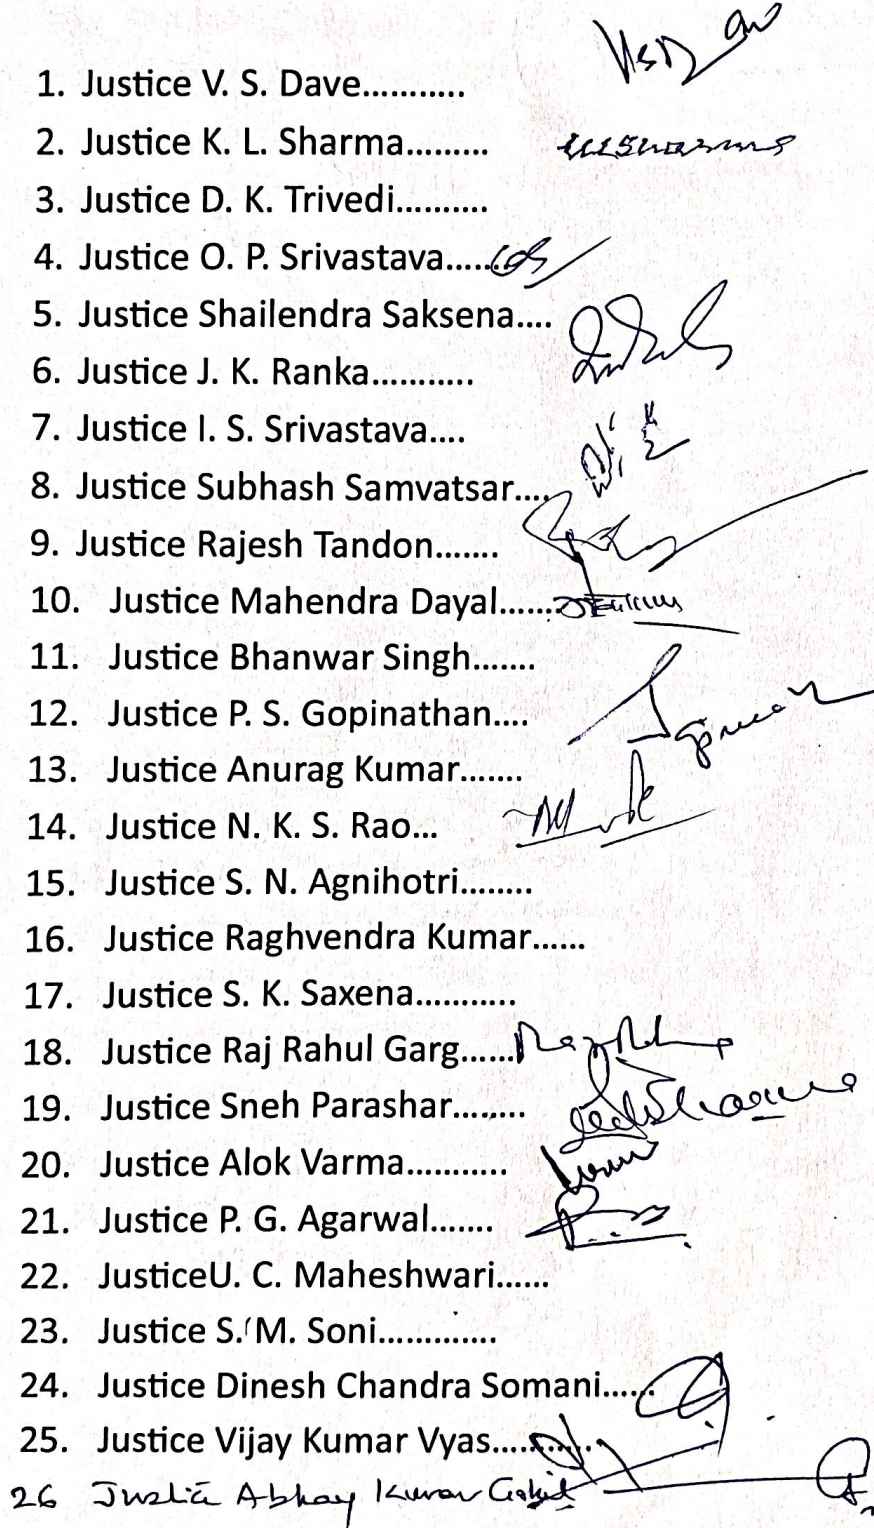 1. Justice V. S. Dave...........
2. Justice K. L. Sharma......... KLSharma
3. Justice D. K. Trivedi..........
4. Justice O. P. Srivastava......
5. Justice Shailendra Saksena....
6. Justice J. K. Ranka...........
7. Justice I. S. Srivastava....
8. Justice Subhash Samvatsar....
9. Justice Rajesh Tandon.......
10. Justice Mahendra Dayal......
11. Justice Bhanwar Singh.......
12. Justice P. S. Gopinathan....
13. Justice Anurag Kumar.......
14. Justice N. K. S. Rao...
15. Justice S. N. Agnihotri........
16. Justice Raghvendra Kumar......
17. Justice S. K. Saxena...........
18. Justice Raj Rahul Garg......
19. Justice Sneh Parashar........
20. Justice Alok Varma...........
21. Justice P. G. Agarwal.......
22. JusticeU. C. Maheshwari......
23. Justice S. M. Soni.............
24. Justice Dinesh Chandra Somani.....
25. Justice Vijay Kumar Vyas...........
26 Justice Abhay Kumar Gohil